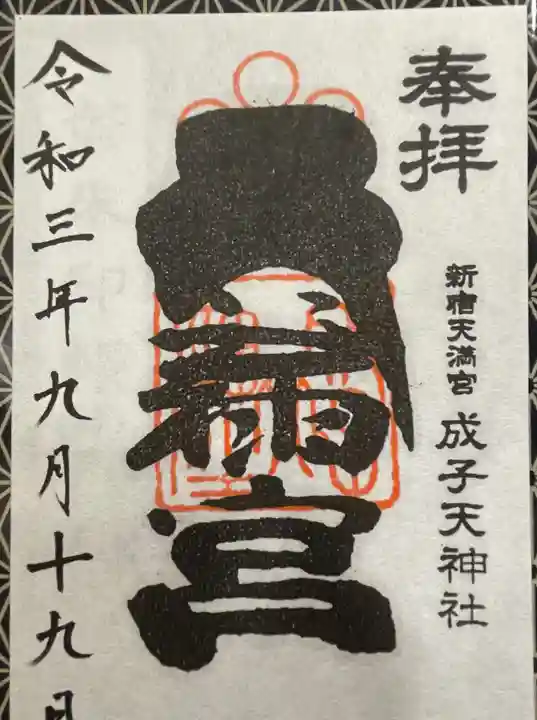 奉拝
新宿天満宮 成子天神社
天満宮
令和三年九月十九日